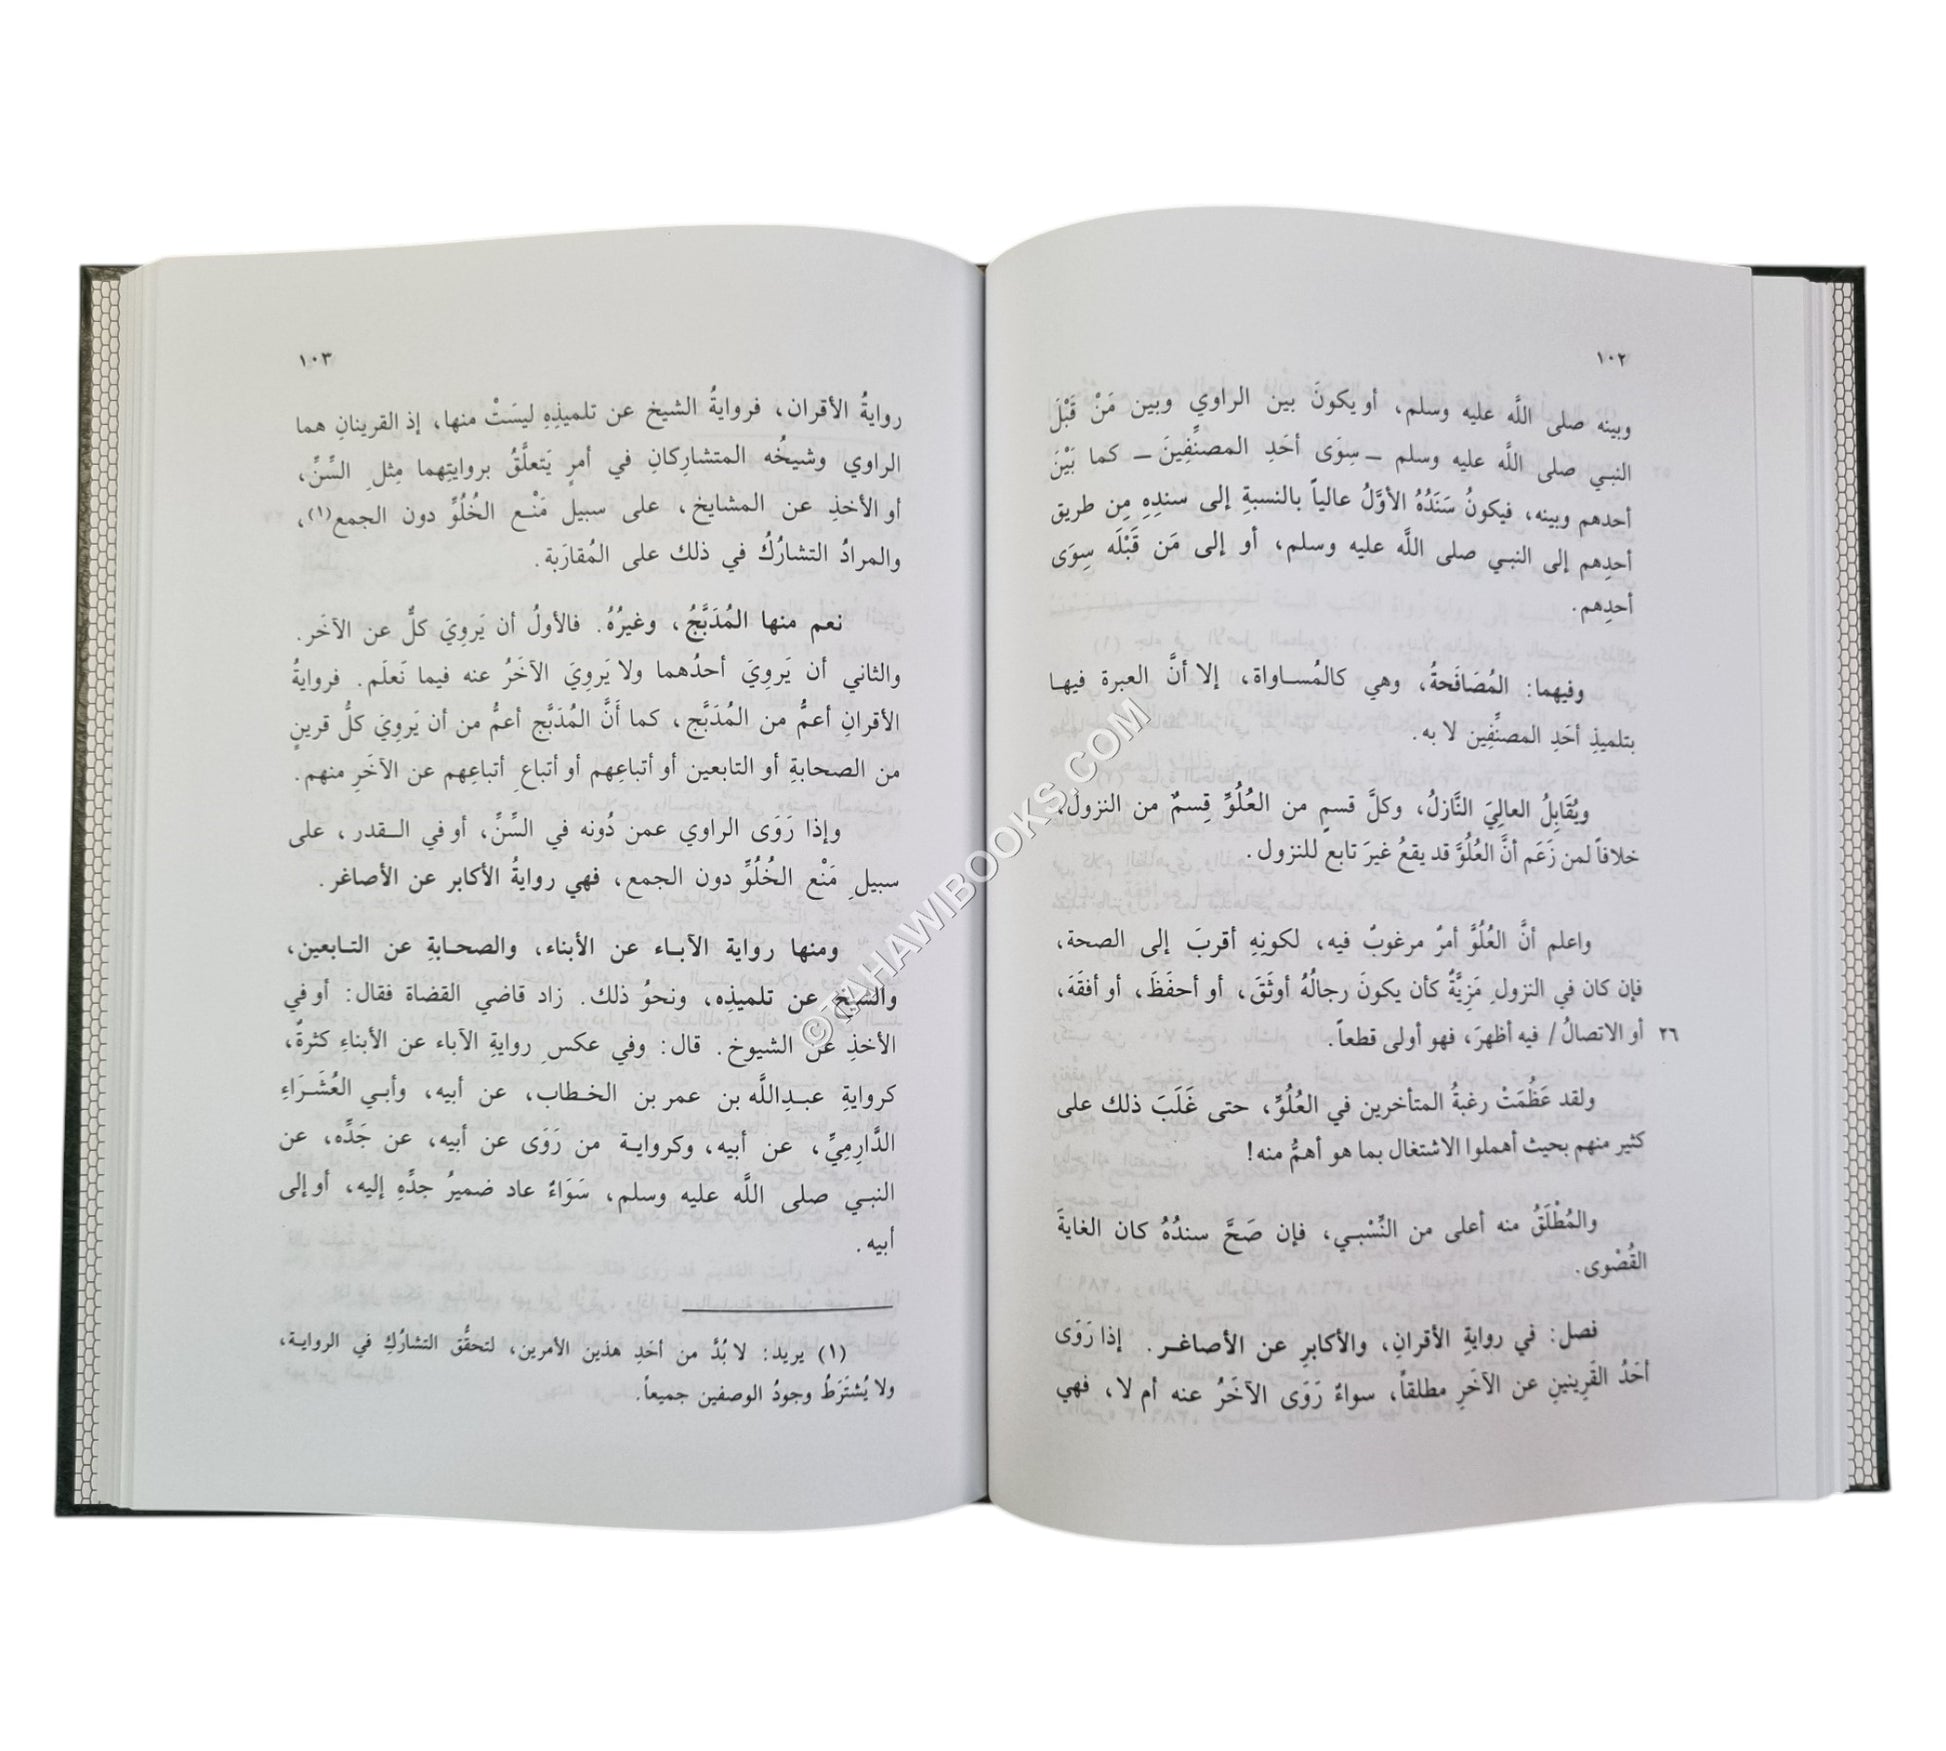 ١٠٢
وبينه صلى اللَّه عليه وسلم، أو يكونَ بين الراوي وبين مَنْ قَبْلَ
النبي صلى اللَّه عليه وسلم ـ سِوَى أحَدِ المصنِّفِينَ ـ كما بَيْنَ
أحدهم وبينه، فيكونُ سَنَدُهُ الأوَّلُ عالياً بالنسبةِ إلى سندِهِ مِن طريق
أحدِهم إلى النبي صلى اللَّه عليه وسلم، أو إلى مَن قَبْلَه سِوَى
أحدِهم.
وفيهما: المُصَافَحةُ، وهي كالمُساواة، إلا أنَّ العبرة فيها
بتلميذِ أحَدِ المصنِّفِين لا به.
ويُقَابِلُ العالِيَ النَّازلُ، وكلَّ قسمٍ من العُلُوِّ قِسمٌ من النزول،
خلافاً لمن زَعَم أنَّ العُلُوَّ قد يقعُ غيرَ تابع للنزول.
واعلم أنَّ العُلُوَّ أمرٌ مرغوبٌ فيه، لكونِهِ أقربَ إلى الصحة،
فإن كان في النزولِ مَزِيَّةٌ كأن يكونَ رجالُهُ أوثَقَ، أو أحفَظَ، أو أفقَهَ،
أو الاتصالُ / فيه أظهرَ، فهو أولى قطعاً. ٢٦
ولقد عَظُمَتْ رغبةُ المتأخرين في العُلُوِّ، حتى غَلَبَ ذلك على
كثير منهم بحيث أهملوا الاشتغال بما هو أهمُّ منه!
والمُطْلَقُ منه أعلى من النِّسْبي، فإن صَحَّ سندُهُ كان الغايةَ
القُصْوى.
فصل: في روايةِ الأقرانِ، والأكابرِ عن الأصاغر. إذا رَوَى
أحَدُ القَرِينينِ عن الآخَرِ مطلقاً، سواءٌ رَوَى الآخَرُ عنه أم لا، فهي
١٠٣
روايةُ الأقران، فروايةُ الشيخ عن تلميذِهِ ليسَتْ منها، إذ القرينانِ هما
الراوي وشيخُه المتشارِكانِ في أمرٍ يَتعلَّقُ بروايتِهما مِثلِ السِّنِّ،
أو الأخذِ عن المشايخ، على سبيل مَنْع الخُلُوِّ دون الجمع(١)،
والمرادُ التشارُكُ في ذلك على المُقارَبة.
نعم منها المُدَبَّجُ، وغيرُهُ. فالأولُ أن يَروِيَ كلٌّ عن الآخَر.
والثاني أن يَروِيَ أحدُهما ولا يَروِيَ الآخَرُ عنه فيما نَعلَم. فروايةُ
الأقرانِ أعمُّ من المُدَبَّج، كما أنَّ المُدَبَّج أعمُّ من أن يَروِيَ كلُّ قرينٍ
من الصحابةِ أو التابعين أو أتباعِهم أو أتباعِ أتباعِهم عن الآخَرِ منهم.
وإذا رَوَى الراوي عمن دُونه في السِّنِّ، أو في القدر، على
سبيلِ مَنْع الخُلُوِّ دون الجمع، فهي روايةُ الأكابر عن الأصاغر.
ومنها رواية الآباء عن الأبناء، والصحابةِ عن التابعين،
والشيخِ عن تلميذِه، ونحوُ ذلك. زاد قاضي القضاة فقال: أو في
الأخذِ عن الشيوخ. قال: وفي عكسِ روايةِ الآباء عن الأبناءِ كثرةٌ،
كروايةِ عبدِاللَّه بن عمر بن الخطاب، عن أبيه، وأبي العُشَرَاءِ
الدَّارِمِيِّ، عن أبيه، وكرواية من رَوَى عن أبيه، عن جَدِّه، عن
النبي صلى اللَّه عليه وسلم، سَوَاءٌ عاد ضميرُ جدِّهِ إليه، أو إلى
أبيه.
(١) يريد: لا بُدَّ من أحَدِ هذين الأمرين، لتحقُّق التشارُكِ في الرواية،
ولا يُشتَرَطُ وجودُ الوصفين جميعاً.
©TAHAWIBOOKS.COM